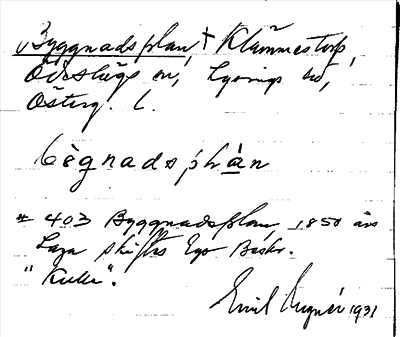 Byggnadsplan, † Klämmestorp,
Ödeshögs sn, Lysings hd,
Österg. L.
bègnadsphàn
# 403 Byggnadsplan, 1850 års
Laga skiftes Ego Beskr.
"Kulle".
Emil 1931